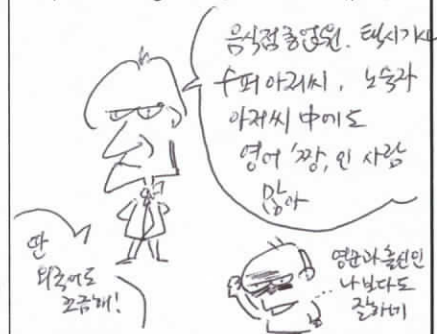 음식점종업원. 택시기사
수퍼아저씨, 노숙자
아저씨 中에도
영어 '짱, 인 사람
많아
딴
외국어도
조금해!
영문과출신인
나보다도
잘하네